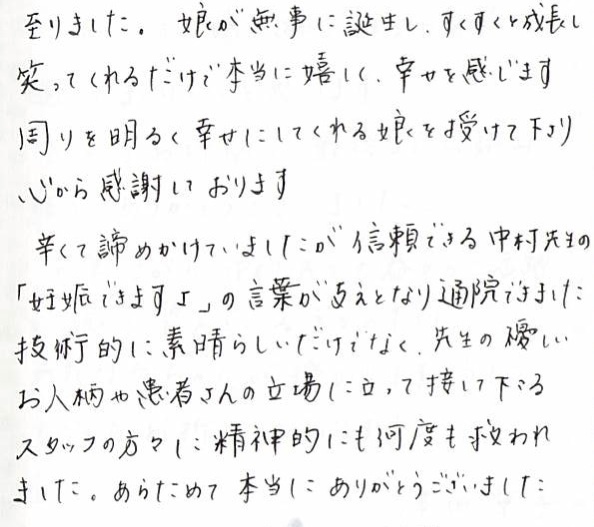 至りました。 娘が無事に誕生し、すくすくと成長し
笑ってくれるだけで本当に嬉しく、幸せを感じます
周りを明るく幸せにしてくれる娘を授けて下さり
心から感謝しております
辛くて諦めかけていましたが信頼できる中村先生の
「妊娠できますよ」の言葉が支えとなり通院できました
技術的に素晴らしいだけでなく、先生の優しい
お人柄や患者さんの立場に立って接して下さる
スタッフの方々に精神的にも何度も救われ
ました。あらためて本当にありがとうございました